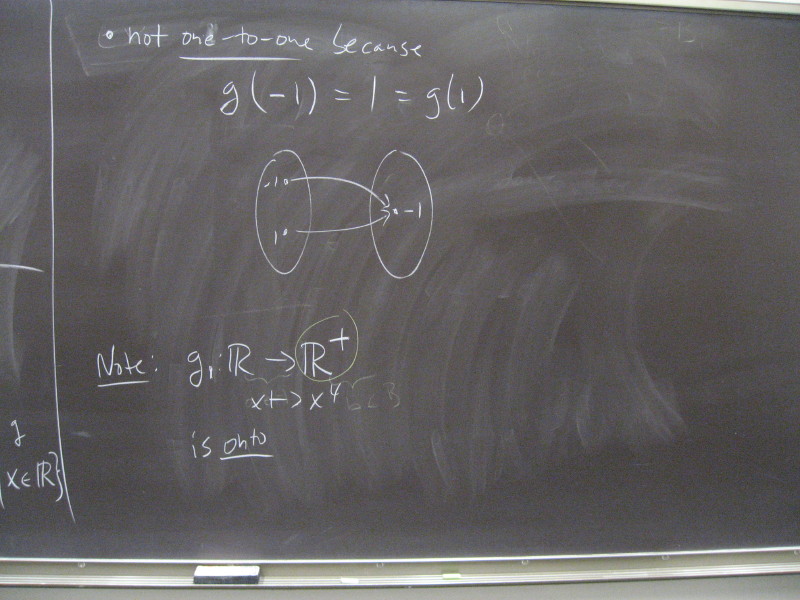 • not one-to-one because
g(-1) = 1 = g(1)
-1
1
-1
Note: g₁: ℝ → ℝ⁺
x ↦ x⁴
is onto
g
x∈ℝ}